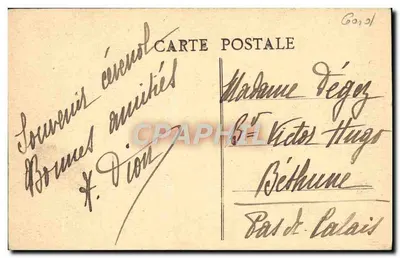 Gard
CARTE POSTALE
Souvenir cévenol
Bonnes amitiés
Madame Dégez
Bd Victor Hugo
Béthune
Pas de Calais
CRAPHILE